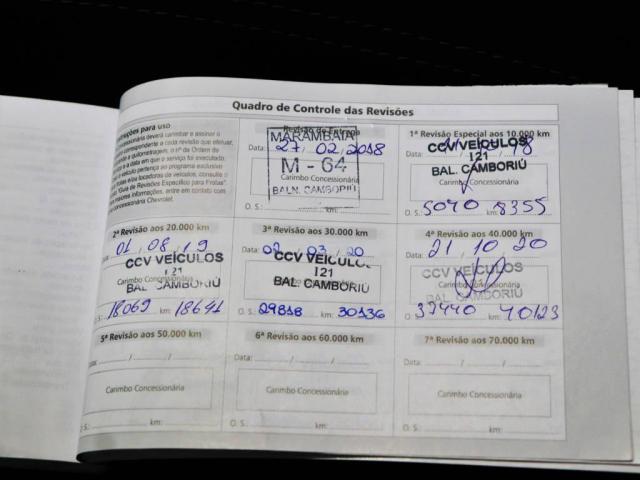 Quadro de Controle das Revisões
Instruções para uso
concessionária deverá carimbar e assinar o
correspondente a cada revisão que efetuar,
a quilometragem, o nº da Ordem de
e a data em que o serviço foi executado.
veículo pertença ao programa exclusivo
frotas e/ou locadoras de veículos, consulte o
"Guia de Revisões Específico para Frotas".
maiores informações, entre em contato com
concessionária Chevrolet.
Revisão de Entrega
MARAMBAIA
Data: 27, 02, 2018
M - 64
Carimbo Concessionária
BALN. CAMBORIÚ
O. S.:
1ª Revisão Especial aos 10.000 km
CCV VEÍCULOS
Data: 18
121
BAL. CAMBORIÚ
Carimbo Concessionária
O. S.: 5040 km: 8355
2ª Revisão aos 20.000 km
01, 08, 19
CCV VEÍCULOS
121
Carimbo Concessionária
BAL. CAMBORIÚ
O. S.: 18069 km: 18641
3ª Revisão aos 30.000 km
Data: 02 / 03 / 20
CCV VEÍCULOS
121
Carimbo Concessionária
BAL. CAMBORIÚ
O. S.: 29818 km: 30136
4ª Revisão aos 40.000 km
Data: 21 10 20
CCV VEÍCULOS
121
Carimbo Concessionária
BAL. CAMBORIÚ
O. S.: 37440 km: 40123
5ª Revisão aos 50.000 km
Data: / /
Carimbo Concessionária
O. S.: km:
6ª Revisão aos 60.000 km
Data: / /
Carimbo Concessionária
O. S.: km:
7ª Revisão aos 70.000 km
Data: / /
Carimbo Concessionária
O. S.: km: